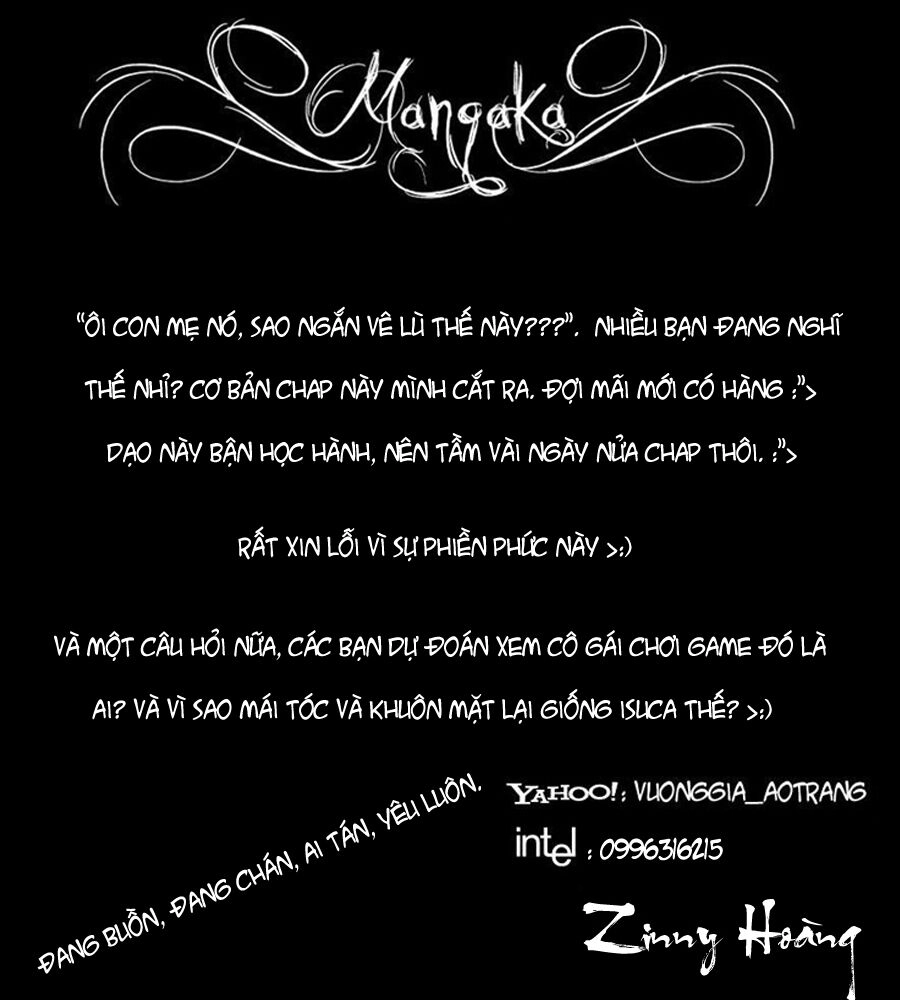 Mangaka
“ÔI CON MẸ NÓ, SAO NGẮN VÊ LÙ THẾ NÀY???”. NHIỀU BẠN ĐANG NGHĨ
THẾ NHỈ? CƠ BẢN CHAP NÀY MÌNH CẮT RA. ĐỢI MÃI MỚI CÓ HÀNG :”>
DẠO NÀY BẬN HỌC HÀNH, NÊN TẦM VÀI NGÀY NỬA CHAP THÔI. :”>
RẤT XIN LỖI VÌ SỰ PHIỀN PHỨC NÀY >:)
VÀ MỘT CÂU HỎI NỮA, CÁC BẠN DỰ ĐOÁN XEM CÔ GÁI CHƠI GAME ĐÓ LÀ
AI? VÀ VÌ SAO MÁI TÓC VÀ KHUÔN MẶT LẠI GIỐNG ISUCA THẾ? >:)
ĐANG BUỒN, ĐANG CHÁN, AI TÁN, YÊU LUÔN.
YAHOO!: VUONGGIA_AOTRANG
intel : 0996316215
Zinny Hoàng